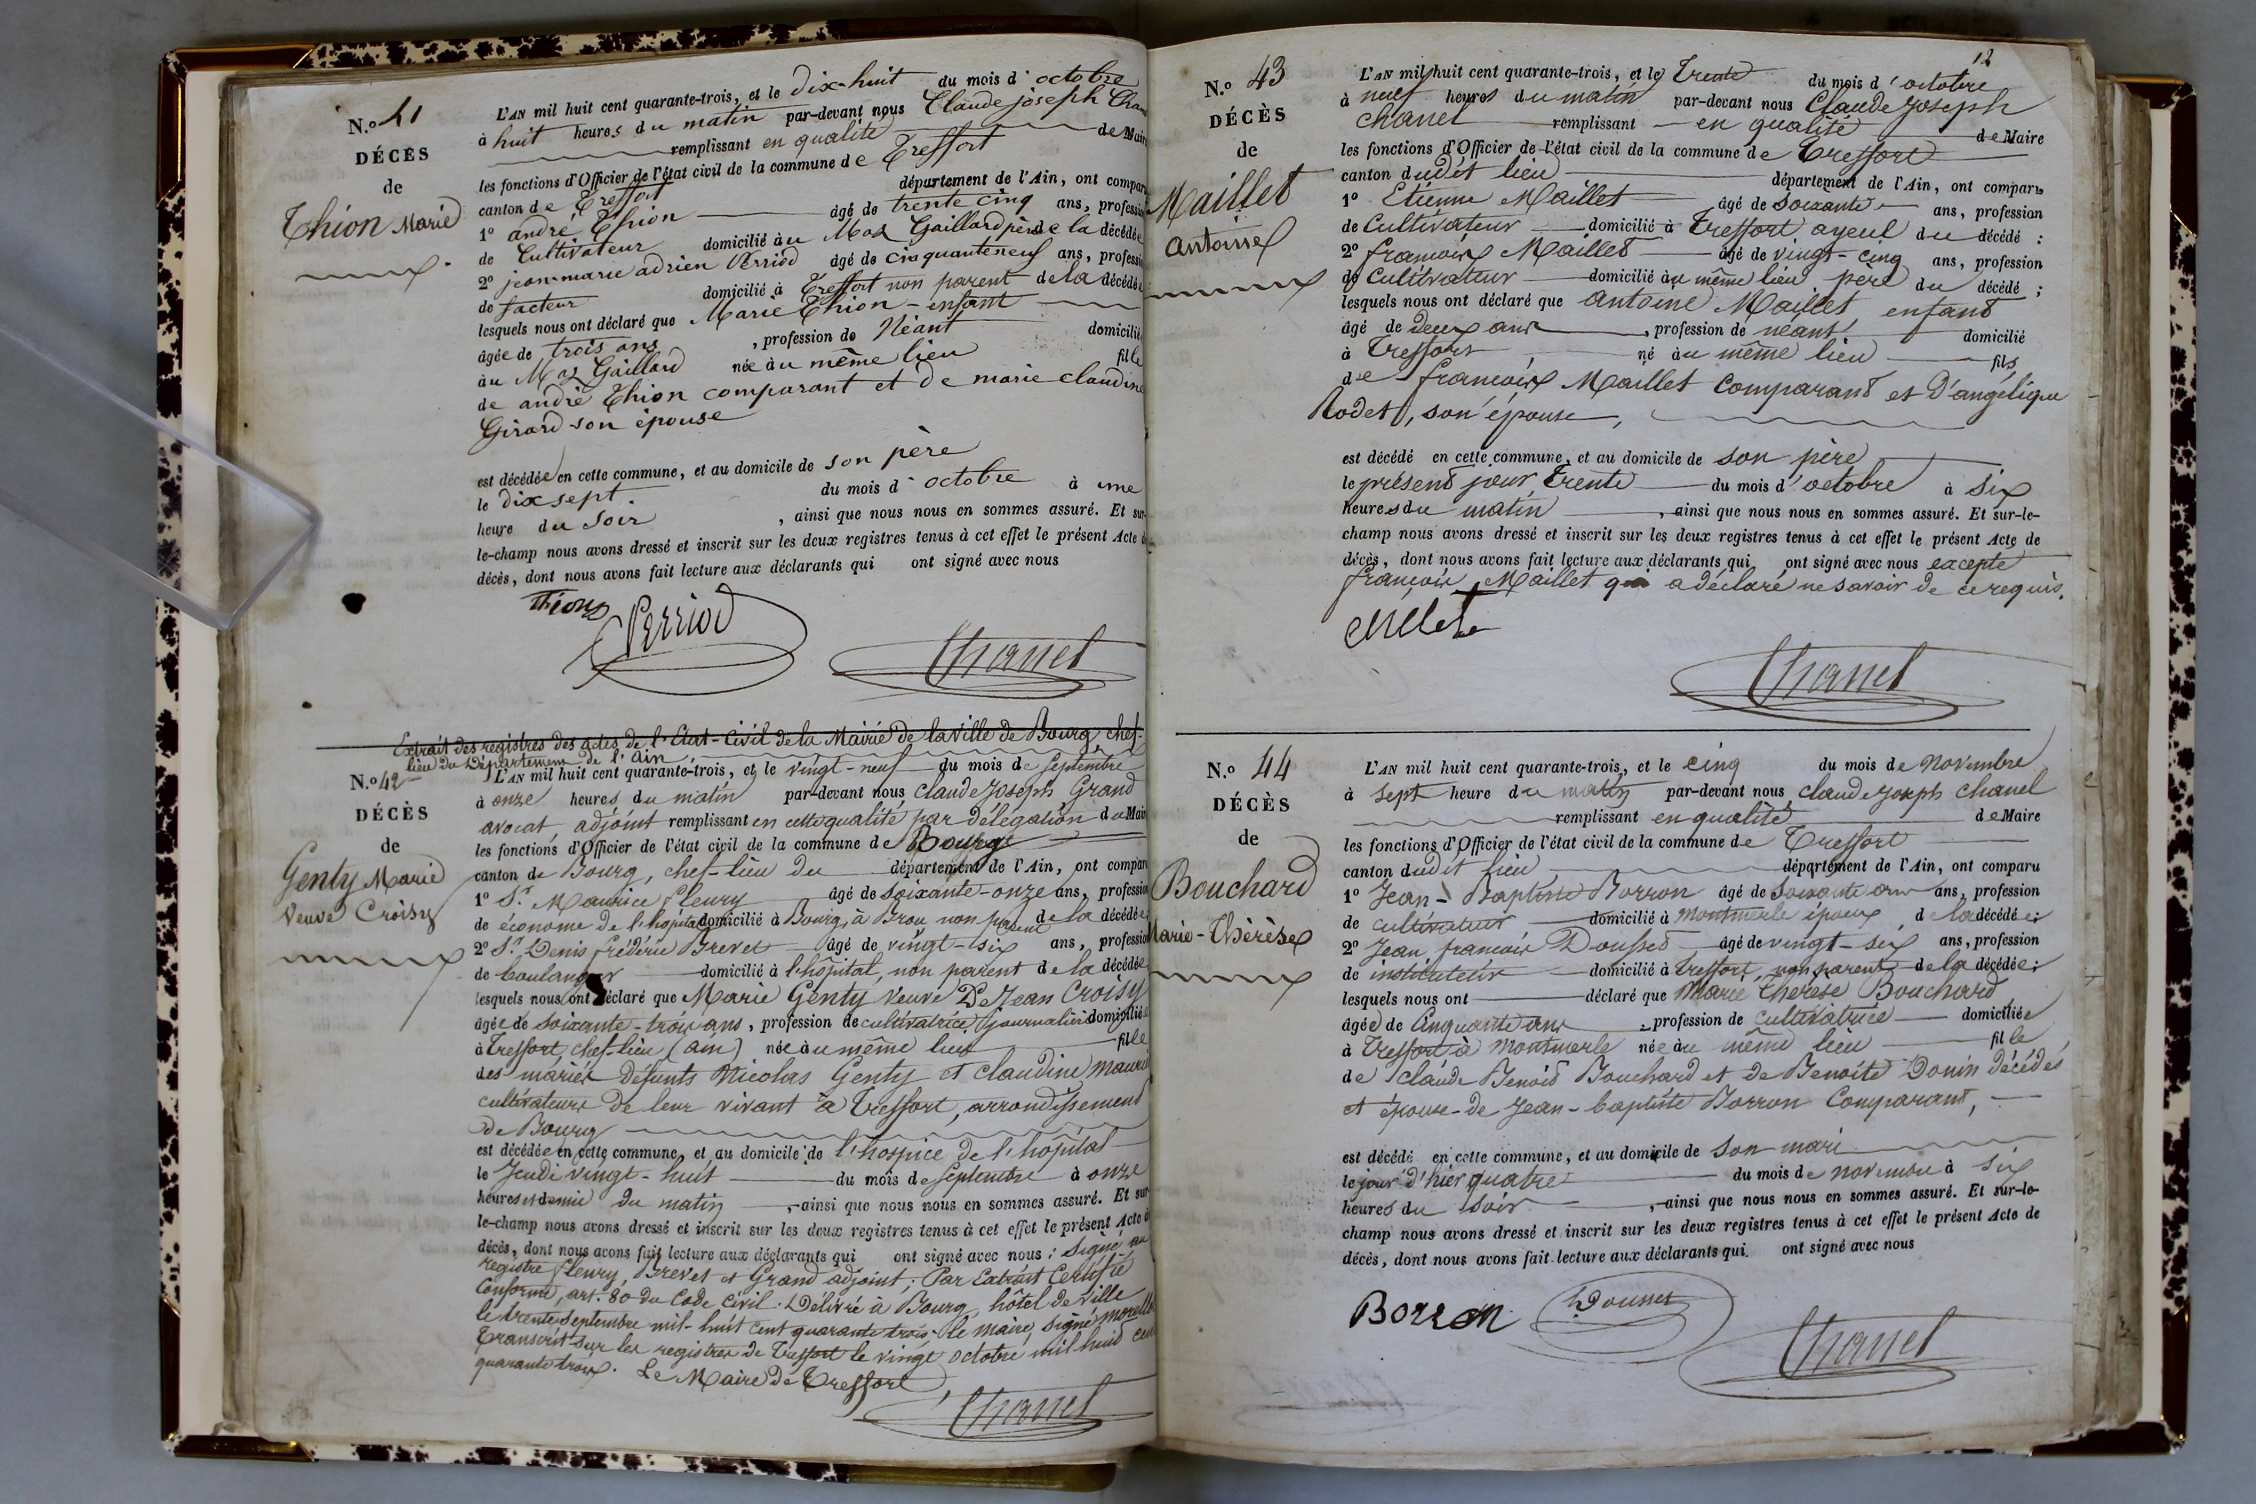 N.o 41
DÉCÈS
de
Thion Marie
L'AN mil huit cent quarante-trois, et le dix-huit du mois d'octobre
à huit heures du matin par-devant nous Claude joseph Chanel
remplissant en qualité de Maire
les fonctions d'Officier de l'état civil de la commune de Treffort
canton de Treffort département de l'Ain, ont comparu
1° andré Thion âgé de trente cinq ans, profession
de Cultivateur domicilié au Mas Gaillard père de la décédée
2° jean-marie adrien Perriod âgé de cinquante neuf ans, profession
de facteur domicilié à Treffort non parent de la décédée
lesquels nous ont déclaré que Marie Thion - enfant
âgée de trois ans, profession de Néant domiciliée
au Mas Gaillard née au même lieu fille
de andré Thion comparant et de marie claudine
Girard son épouse
est décédée en cette commune, et au domicile de son père
le dix sept du mois d'octobre à une
heure du soir, ainsi que nous nous en sommes assuré. Et sur-
le-champ nous avons dressé et inscrit sur les deux registres tenus à cet effet le présent Acte de
décès, dont nous avons fait lecture aux déclarants qui ont signé avec nous
Thion
Perriod
Chanel
Extrait des registres des actes de l'Etat-Civil de la Mairie de la ville de Bourg, chef-
lieu du Département de l'Ain.
N.o 42
DÉCÈS
de
Genty Marie
Veuve Croisy
L'AN mil huit cent quarante-trois, et le vingt-neuf du mois de Septembre
à onze heures du matin par-devant nous Claude Joseph Grand
avocat, adjoint remplissant en cette qualité par délégation du Maire
les fonctions d'Officier de l'état civil de la commune de Bourg
canton de Bourg, chef-lieu du département de l'Ain, ont comparu
1° Sr. Maurice fleury âgé de soixante-onze ans, profession
de économe de l'hôpital domicilié à Bourg, à Brou non parent de la décédée
2° Sr. Denis frédéric Brevet âgé de vingt-six ans, profession
de boulanger domicilié à l'hôpital, non parent de la décédée
lesquels nous ont déclaré que Marie Genty veuve De Jean Croisy
âgée de soixante-trois ans, profession de cultivatrice journalière domiciliée
à Treffort, chef-lieu (ain) née au même lieu fille
des mariés défunts Nicolas Genty et Claudine Maurice
cultivateurs de leur vivant à Treffort, arrondissement
de Bourg
est décédée en cette commune, et au domicile de l'hospice de l'hôpital
le Jeudi vingt-huit du mois de Septembre à onze
heures et demie du matin, ainsi que nous nous en sommes assuré. Et sur-
le-champ nous avons dressé et inscrit sur les deux registres tenus à cet effet le présent Acte de
décès, dont nous avons fait lecture aux déclarants qui ont signé avec nous : Signé au
registre fleury, Brevet et Grand adjoint; Par Extrait Certifié
Conforme, art. 80 du Code Civil. Délivré à Bourg, hôtel de Ville
le trente Septembre mil-huit cent quarante trois. le maire, signé
Transcrit sur les registres de Treffort le vingt octobre mil huit cent
quarante trois. Le Maire de Treffort
Chanel
12
N.o 43
DÉCÈS
de
Maillet
antoine
L'AN mil huit cent quarante-trois, et le Trente du mois d'octobre
à neuf heures du matin par-devant nous Claude Joseph
Chanel remplissant en qualité de Maire
les fonctions d'Officier de l'état civil de la commune de Treffort
canton dudit lieu département de l'Ain, ont comparu
1° Etienne Maillet âgé de soixante ans, profession
de Cultivateur domicilié à Treffort ayeul du décédé :
2° françois Maillet âgé de vingt-cinq ans, profession
de Cultivateur domicilié au même lieu père du décédé ;
lesquels nous ont déclaré que antoine Maillet, enfant
âgé de deux ans, profession de néant domicilié
à Treffort né au même lieu fils
de françois Maillet comparant et D'angélique
Rodet, son épouse,
est décédé en cette commune, et au domicile de son père
le présent jour Trente du mois d'octobre à six
heures du matin, ainsi que nous nous en sommes assuré. Et sur-le-
champ nous avons dressé et inscrit sur les deux registres tenus à cet effet le présent Acte de
décès, dont nous avons fait lecture aux déclarants qui ont signé avec nous excepté
françois Maillet qui a déclaré ne savoir de ce requis.
Chanel
N.o 44
DÉCÈS
de
Bouchard
Marie-Thérèse
L'AN mil huit cent quarante-trois, et le cinq du mois de Novembre
à sept heure du matin par-devant nous claude joseph Chanel
remplissant en qualité de Maire
les fonctions d'Officier de l'état civil de la commune de Treffort
canton dudit lieu département de l'Ain, ont comparu
1° Jean-Baptiste Borron âgé de soixante ans ans, profession
de cultivateur domicilié à Montmerle époux de la décédée;
2° Jean françois Dousset âgé de vingt-six ans, profession
de instituteur domicilié à Treffort, non parent de la décédée;
lesquels nous ont déclaré que Marie Thérèse Bouchard,
âgée de Cinquante ans, profession de cultivatrice domiciliée
à Treffort à Montmerle née au même lieu fille
de Claude Benoit Bouchard et de Benoite Donin décédés
et épouse de Jean-baptiste Borron Comparant,
est décédé en cette commune, et au domicile de son mari
le jour d'hier quatre du mois de novembre à six
heures du soir, ainsi que nous nous en sommes assuré. Et sur-le-
champ nous avons dressé et inscrit sur les deux registres tenus à cet effet le présent Acte de
décès, dont nous avons fait lecture aux déclarants qui ont signé avec nous
Borron
Dousset
Chanel